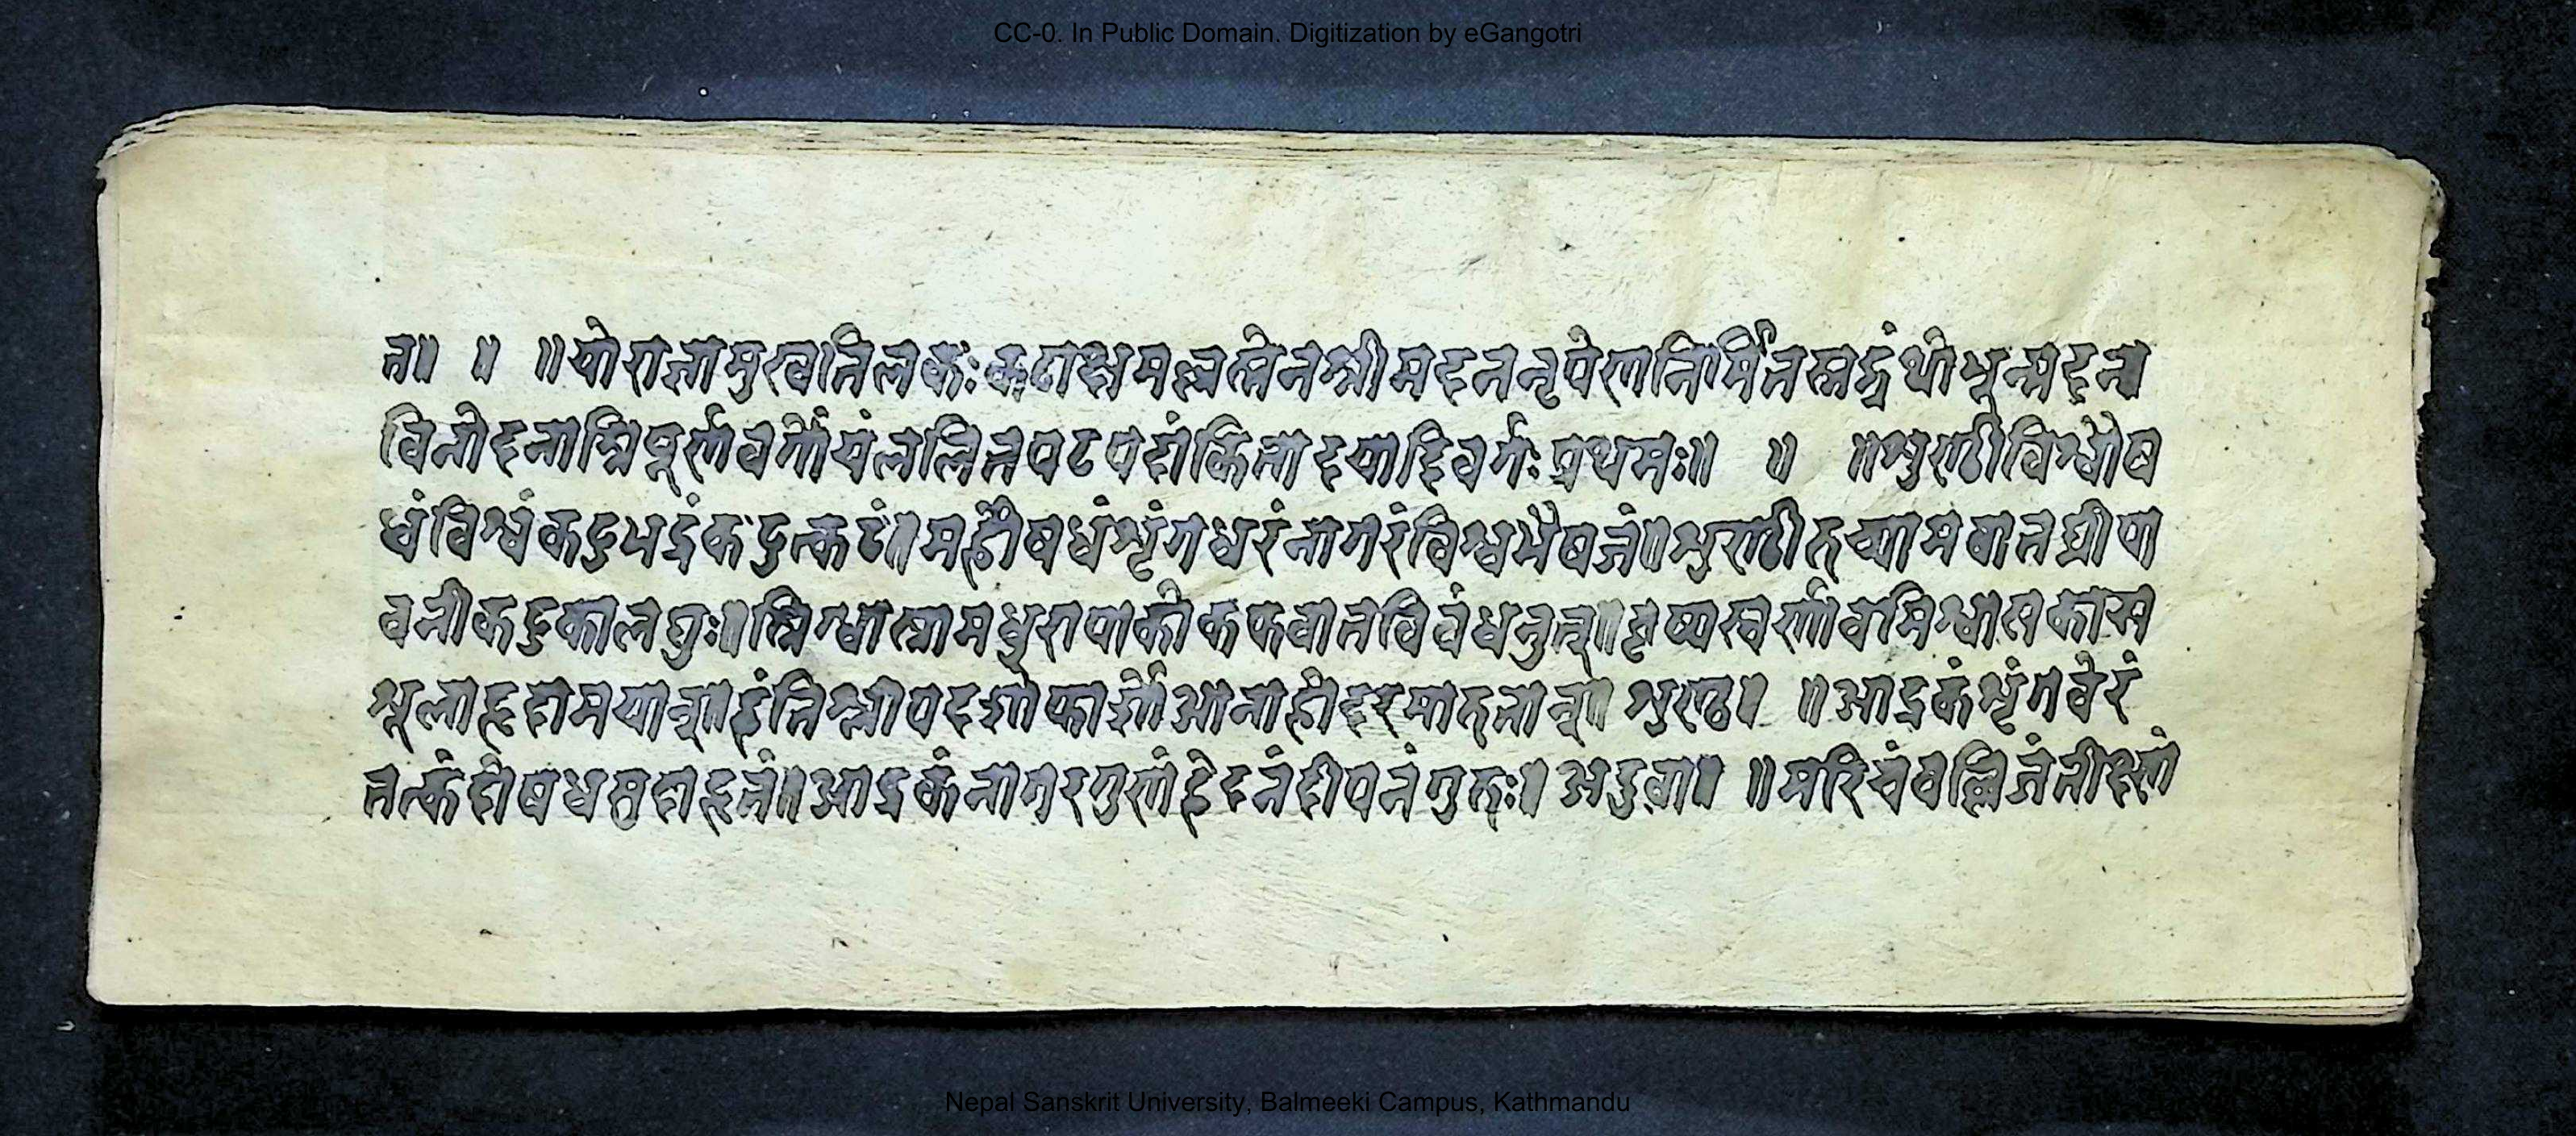 CC-0. In Public Domain. Digitization by eGangotri
त॥ ॥ ॥योराज्ञामुखतिलकः कटाक्षमल्लस्तेनश्रीमदननृपेणनिर्मितेत्रग्रंथेभून्मदन
विनोदनाम्निपूर्णवर्गोयंललितपदपदांकितोदयादिवर्गः प्रथमः॥ ॥ ॥शुण्ठीविश्वौष
धंविश्वंकटुभद्रंकटूत्कटं॥महौषधंशृंगधरंनागरंविश्वभेषजं॥शुण्ठीरुच्यामवातघ्नीपा
चनीकटुकालघुः॥स्निग्धोस्नामधुरापाकेकफवातविबंधनुत्॥वृष्यास्वर्यावमिश्वासकास
शूलहृदामयान्॥हंतिश्लीपदशोफार्शोआनाहोदरमारुतान्॥शुण्ठ॥ ॥आर्द्रकंशृंगवेरं
तत्कंदौषध॥आर्द्रकंनागरगुणंभेदनंदीपनंगुरुः॥अदुवा॥ ॥मरिचंवल्लिजंतीक्ष्णं
Nepal Sanskrit University, Balmeeki Campus, Kathmandu